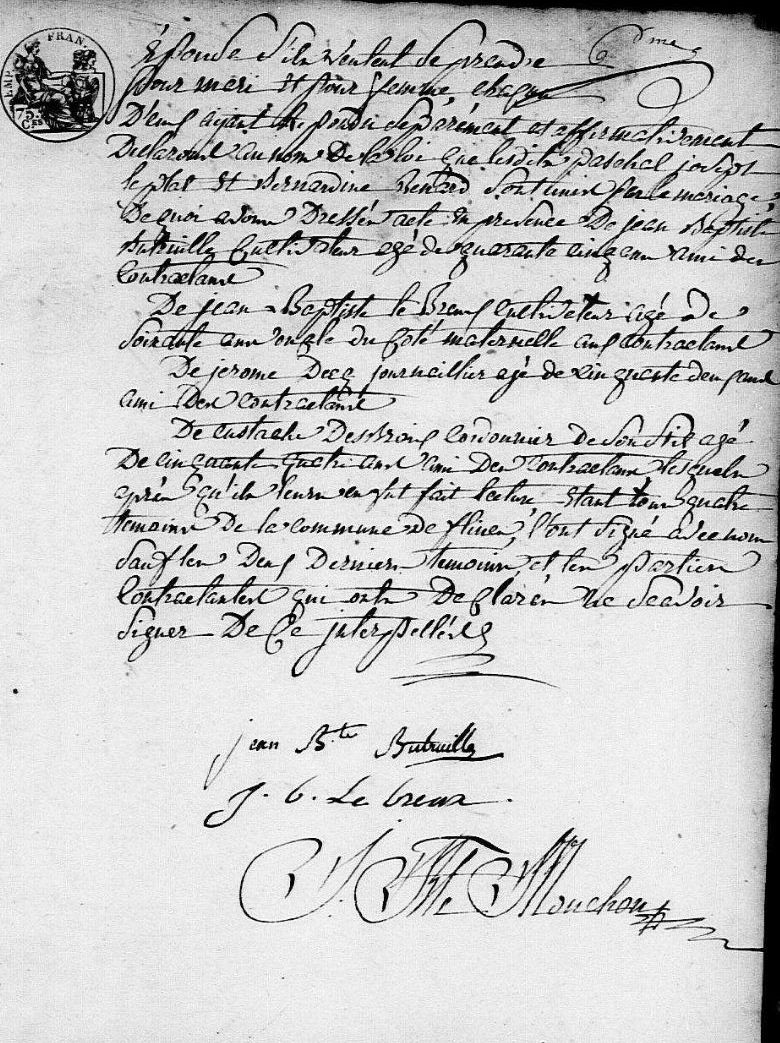 EMP. FRAN.
75
Cts
6 dme
Epouse s'iln veulent se prendre
pour mari et pour femme, chaqun
D'eux ayant repondu séparément et affirmativement
Declarons au nom De la loi que lesdits paschal joseph
le plat et Bernardine Renard sont unis par le mariage,
De quoi avons Dressés acte en presence De jean Baptiste
Butruille Cultivateur agé de quarante cinq ans ami des
Contractans
De jean Baptiste le Breux cultivateur agé de
soixante ans oncle du coté maternelle aux contractans
De jerome Decq journaillier agé de cinquante deux ans
ami Des contractans
De eustache Desbroux cordonnier de son stil agé
De cinquante quatre ans ami Des contractans lesquels
après qu'iln leurn en fut fait lecture etant tous quatre
temoins De la commune De flines, l'ont signé avec nous
sauf les Deux Derniers temoins et les parties
Contractantes qui ont Declarés ne scavoir
signer De ce interpellés
jean Bte Butruille
J. b. Le breux.
Mouchon